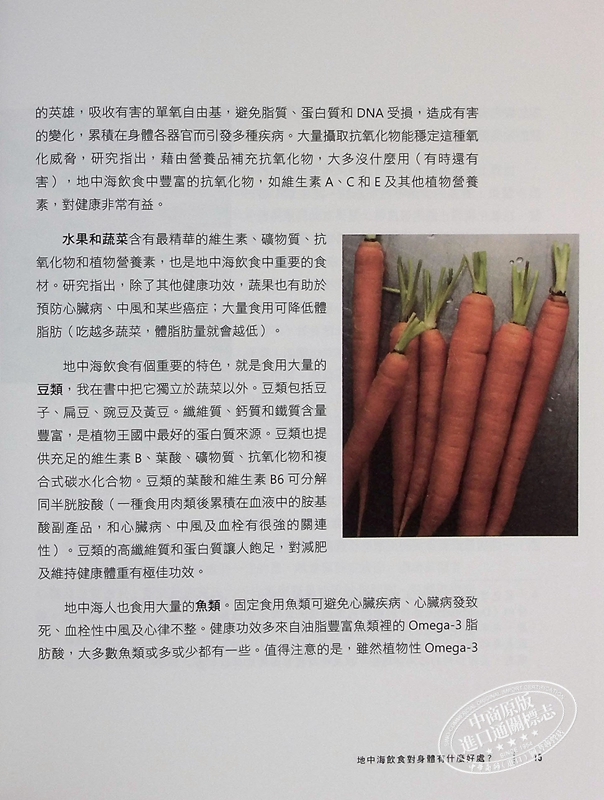 的英雄，吸收有害的單氧自由基，避免脂質、蛋白質和 DNA 受損，造成有害
的變化，累積在身體各器官而引發多種疾病。大量攝取抗氧化物能穩定這種氧
化威脅，研究指出，藉由營養品補充抗氧化物，大多沒什麼用（有時還有
害），地中海飲食中豐富的抗氧化物，如維生素 A、C 和 E 及其他植物營養
素，對健康非常有益。
水果和蔬菜含有最精華的維生素、礦物質、抗
氧化物和植物營養素，也是地中海飲食中重要的食
材。研究指出，除了其他健康功效，蔬果也有助於
預防心臟病、中風和某些癌症；大量食用可降低體
脂肪（吃越多蔬菜，體脂肪量就會越低）。
地中海飲食有個重要的特色，就是食用大量的
豆類，我在書中把它獨立於蔬菜以外。豆類包括豆
子、扁豆、豌豆及黃豆。纖維質、鈣質和鐵質含量
豐富，是植物王國中最好的蛋白質來源。豆類也提
供充足的維生素 B、葉酸、礦物質、抗氧化物和複
合式碳水化合物。豆類的葉酸和維生素 B6 可分解
同半胱胺酸（一種食用肉類後累積在血液中的胺基
酸副產品，和心臟病、中風及血栓有很強的關連
性）。豆類的高纖維質和蛋白質讓人飽足，對減肥
及維持健康體重有極佳功效。
地中海人也食用大量的魚類。固定食用魚類可避免心臟疾病、心臟病發致
死、血栓性中風及心律不整。健康功效多來自油脂豐富魚類裡的 Omega-3 脂
肪酸，大多數魚類或多或少都有一些。值得注意的是，雖然植物性 Omega-3
中商原版
進口通關標志
地中海飲食對身體有什麼好處？ 15